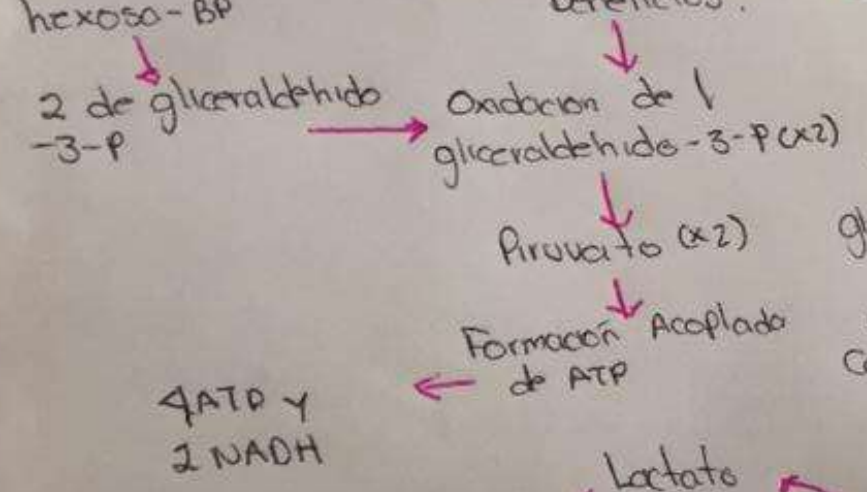 hexosa-BP
2 de gliceraldehido
-3-P
Oxidacion de l
gliceraldehido-3-P (x2)
Piruvato (x2)
Formacion Acoplada
de ATP
4 ATP y
2 NADH
Lactato